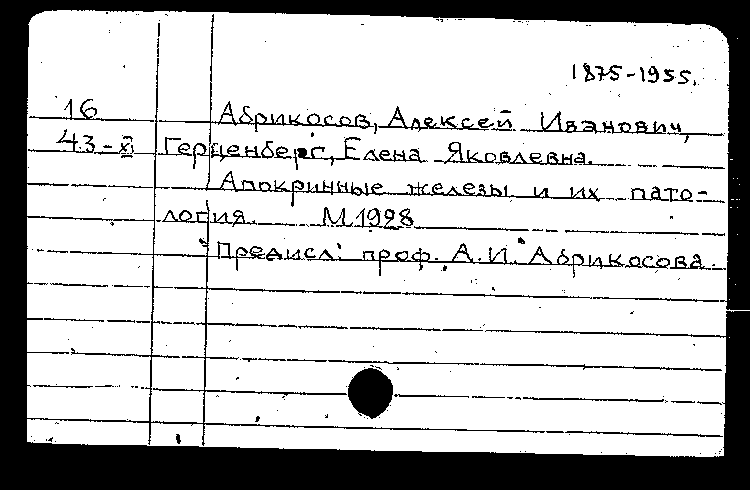 1875-1955.
16 Абрикосов, Алексей Иванович,
43-XI Герценберг, Елена Яковлевна.
Апокринные железы и их пато-
логия. М 1928
Предисл: проф. А.И. Абрикосова.